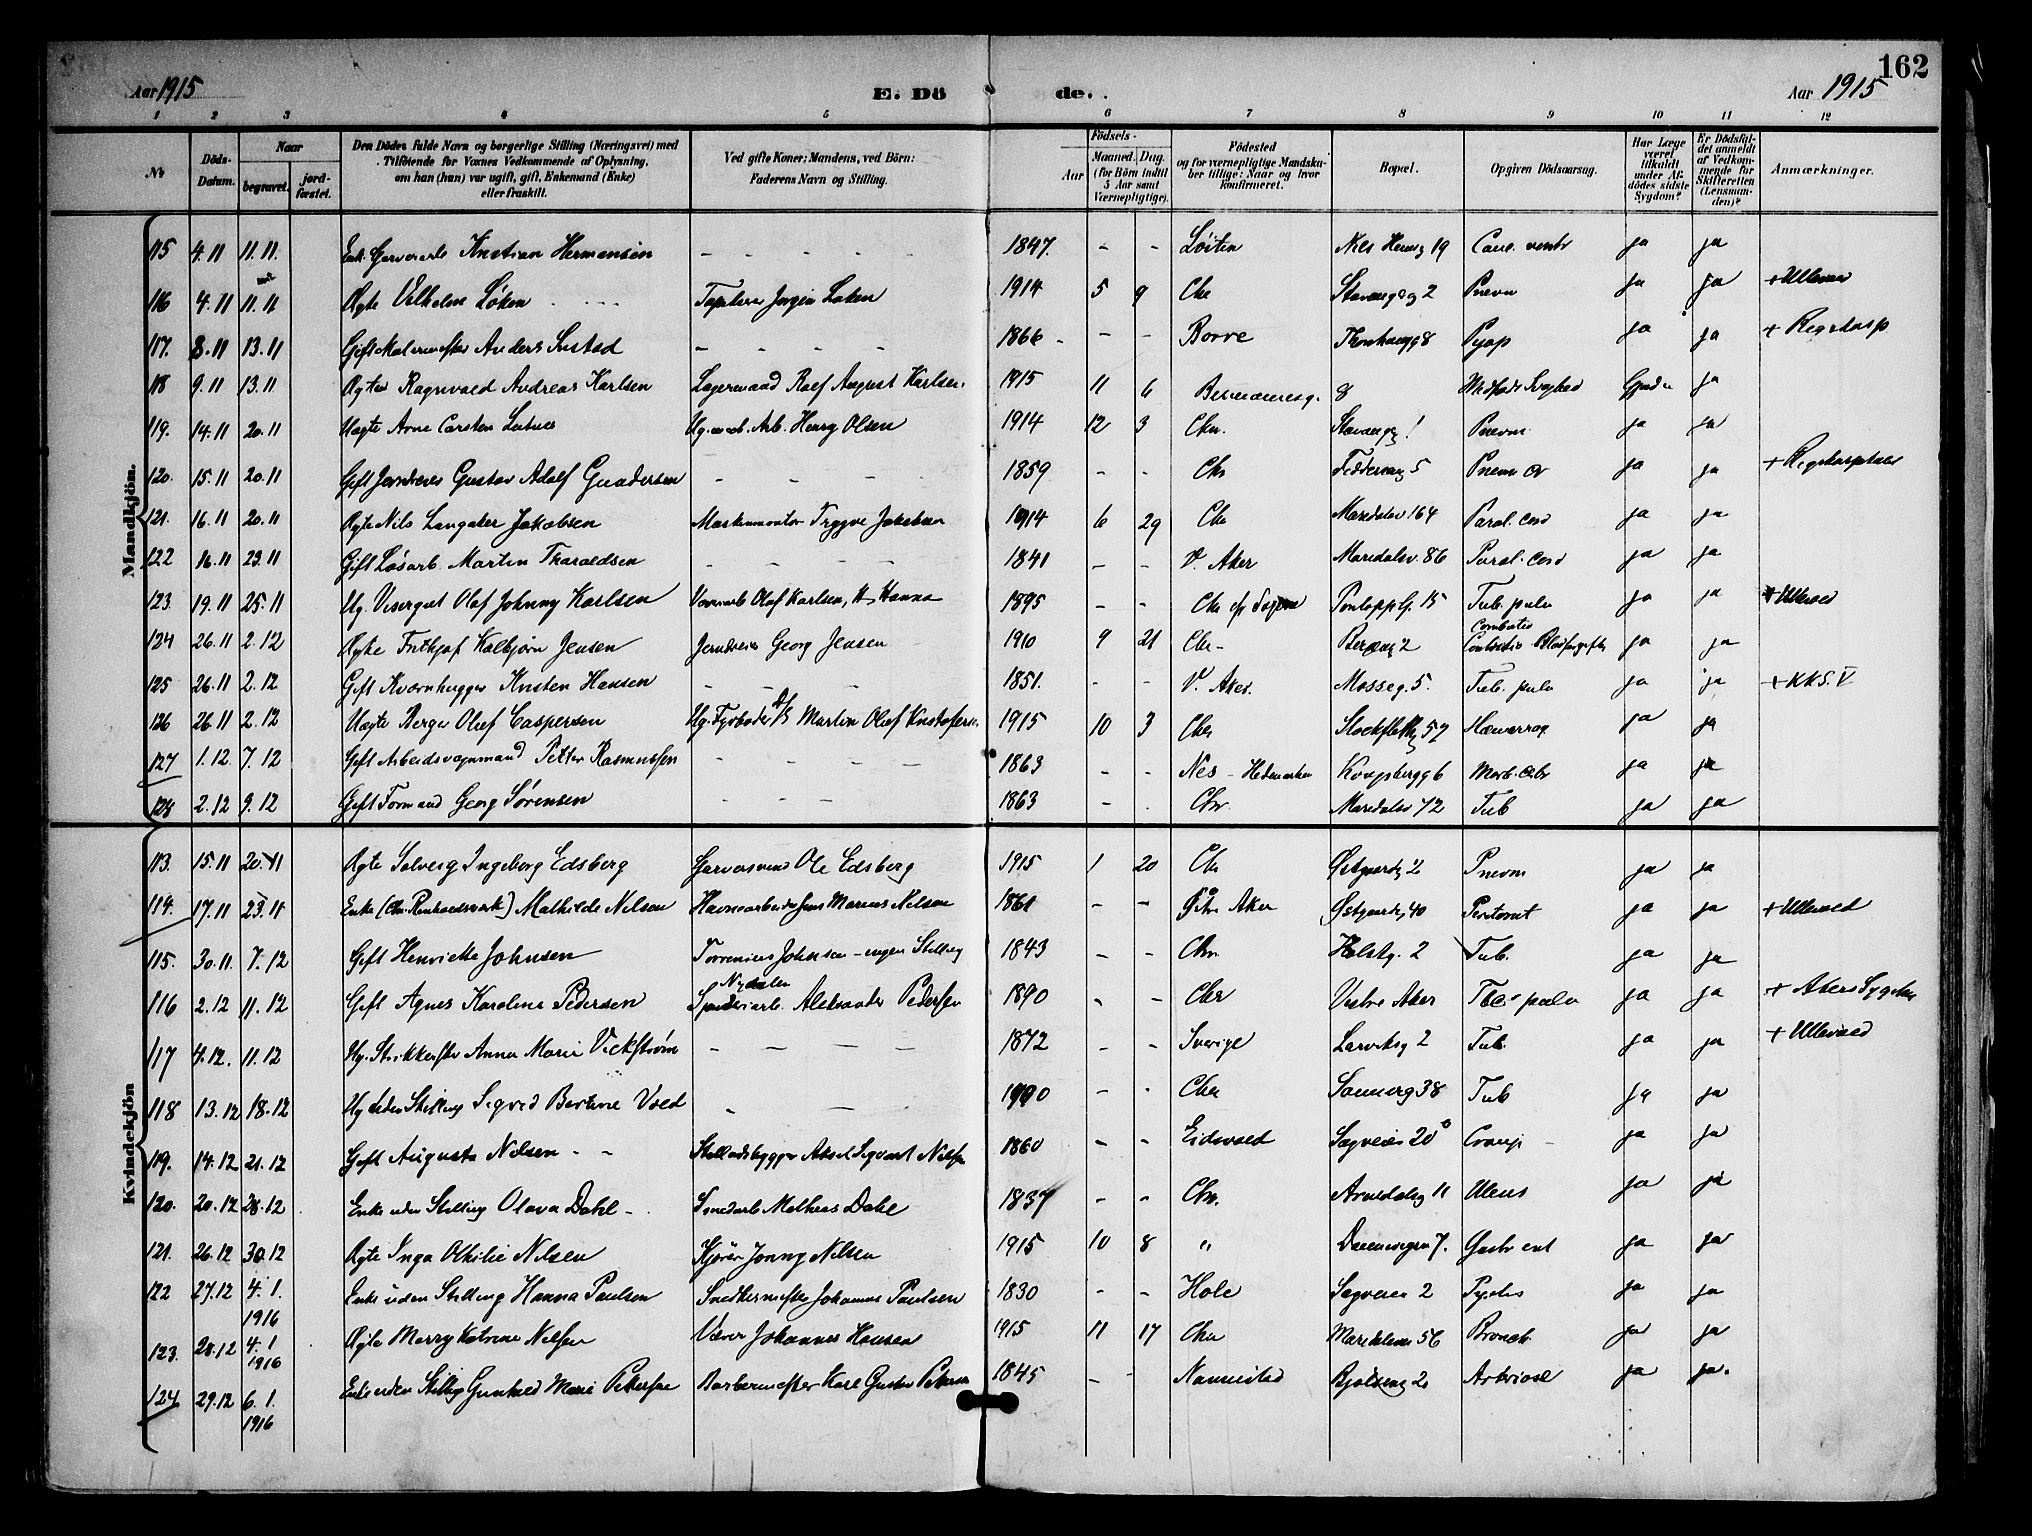 162
Aar 1915
E. Dö
de.
Aar 1915
1 2 3 4 5 6 7 8 9 10 11 12
No
Döds-Datum.
Naar
begravet.
jord-fæstet.
Den Dödes fulde Navn og borgerlige Stilling (Næringsvei) med
Tilföiende for Voxnes Vedkommende af Oplysning,
om han (hun) var ugift, gift, Enkemand (Enke)
eller fraskilt.
Ved gifte Koner: Mandens, ved Börn:
Faderens Navn og Stilling.
Födsels-
Aar
Maaned. Dag.
(for Börn indtil
5 Aar samt
Værnepligtige).
Födested
og for værnepligtige Mandska-
ber tillige: Naar og hvor
konfirmeret.
Bopæl.
Opgiven Dödsaarsag.
Har Læge
været
tilkaldt
under Af-
dödes sidste
Sygdom?
Er Dödsfal-
det anmeldt
af Vedkom-
mende for
Skifteretten
(Lensman-
den)?
Anmærkninger.
Mandkjön.
115 4.11 11.11. Enk. Garverarb Kristian Hermansen - - - - 1847. - - Löiten Nils Hansg 19 Canc. ventr ja ja
116 4.11 11.11 Ægte Vilhelm Løken Tapetserer Jørgen Løken 1914 5 9 Chr Stavangerg 2 Pnevm ja ja + Ullevaal
117. 8.11 13.11 Gift Malermester Anders Sustad - - - - 1866 - - Borre 8 ja ja + Rigshosp
118 9.11 13.11 Ægte Ragnvald Andreas Karlsen Lagermand Rolf August Karlsen. 1915 11 6 8 Medfødt Svaghed ja
119. 14.11 20.11 Uægte Arne Carsten Ug. Arb. Henry Olsen 1914 12 3 Chr. Stavangerg 1 Pnevm ja ja
120. 15.11 20.11 Gift Jerndreier Gustav Adolf Gundersen - - - 1859 - - Chr 5 Pnevm cr ja ja + Rigshospitalet
121. 16.11 20.11 Ægte Nils Langaker Jakobsen Maskinmontør Trygve Jakobsen 1914 6 29 Chr Maridalsv 164 Paral. cord ja ja
122 16.11 23.11 Gift Løsarb. Martin Tharaldsen - - - - 1841 - - V. Aker Maridalsv. 86 Paral. cord ja ja
123. 19.11 25.11 Ug. Visergut Olaf Johnny Karlsen Olaf Karlsen, Hanna 1895 - - Chr Pontoppg. 15 Tub. pulm ja ja + Ullevaal
124 26.11 2.12 Ægte Frithjof Kolbjørn Jensen Jerndreier Georg Jensen 1910 9 21 Chr - Bergsg 2 Combustio Blodforgiftn ja ja
125 26.11 2.12 Gift Kværnhugger Kristen Hansen - - 1851. - - V. Aker. Mosseg. 5. Tub. pulm ja ja + KKS. V
126 26.11 2.12 Uægte Birger Olaf Caspersen Ug. Fyrbøder D/S Martin Olaf Kristofers. 1915 10 3 Chr Stockflethg 57 ja ja
127 1.12 7.12 Gift Arbeidsvognmand Petter Rasmussen - - - - 1863 - - Nes - Hedemarken Kongsbergg 6 Morb. ja ja
128 2.12 9.12 Gift Formand Georg Sørensen - - - 1863 - - Chr. Maridalsv 72 Tub ja ja
Kvindekjön
113. 15.11 20.11 Ægte Solveig Ingeborg Edsberg Garversvend Ole Edsberg 1915 1 20 Chr Østgaardsg 2 Pnevm ja ja
114. 17.11 23.11 Enke (Chr. Renholdsverk) Mathilde Nilsen Havnearbeider Jens Marius Nilsen 1861 - - Aker Østgaardsg 40 Peritonit ja ja + Ullevaal
115. 30.11. 7.12 Gift Henriette Johnsen Torrenius Johnsen - ingen Stilling 1843 - - Chr. Holstg. 2 Tub. ja ja
116 2.12 11.12 Gift Agnes Karoline Pedersen Nydalen Spinderiarb. Aleksander Pedersen 1890 - - Chr Vestre Aker Tbc. pulm ja ja + Akers Sygehus
117 4.12. 11.12 Ug. Strikkerske Anna Marie Vickstrøm - - - - 1872 - - Sverige Larviksg 2 Tub. ja ja + Ullevaal
118 13.12 18.12 Ug uden Stilling Sigrid Bertine Vold - - - 1990 - - Chr Sannerg 38 Tub ja ja
119. 14.12 21.12 Gift Augusta Nilsen - - Stilladsbygger Aksel Sigvart Nilsen 1860 - - Eidsvold Sagveien 20 Croup - ja ja
120. 20.12 28.12 Enke uden Stilling Olava Dahl - Smedarb Mathias Dahl 1837 - - Chr. Arendalsg 11 Ulcus ja ja
121. 26.12 30.12 Ægte Inga Othilie Nilsen Kjører Jonny Nilsen 1915 10 8 " 7. Gastr ent ja ja
122 27.12 4.1. 1916 Enke uden Stilling Hanna Paulsen Snedkermester Johannes Paulsen 1830 - - Hole Sagveien 2 ja ja
123. 28.12 4.1 1916 Ægte Marry Katrine Nilsen Johannes Hansen 1915 11 17 Chr Maridalsvei 56 Bronch ja ja
124 29.12 6.1. 1916 Enke uden Stilling Gunhild Marie Petersen Barbermester Karl Gustav Petersen 1845 - - Nannestad Bjølseng 2 ja ja.